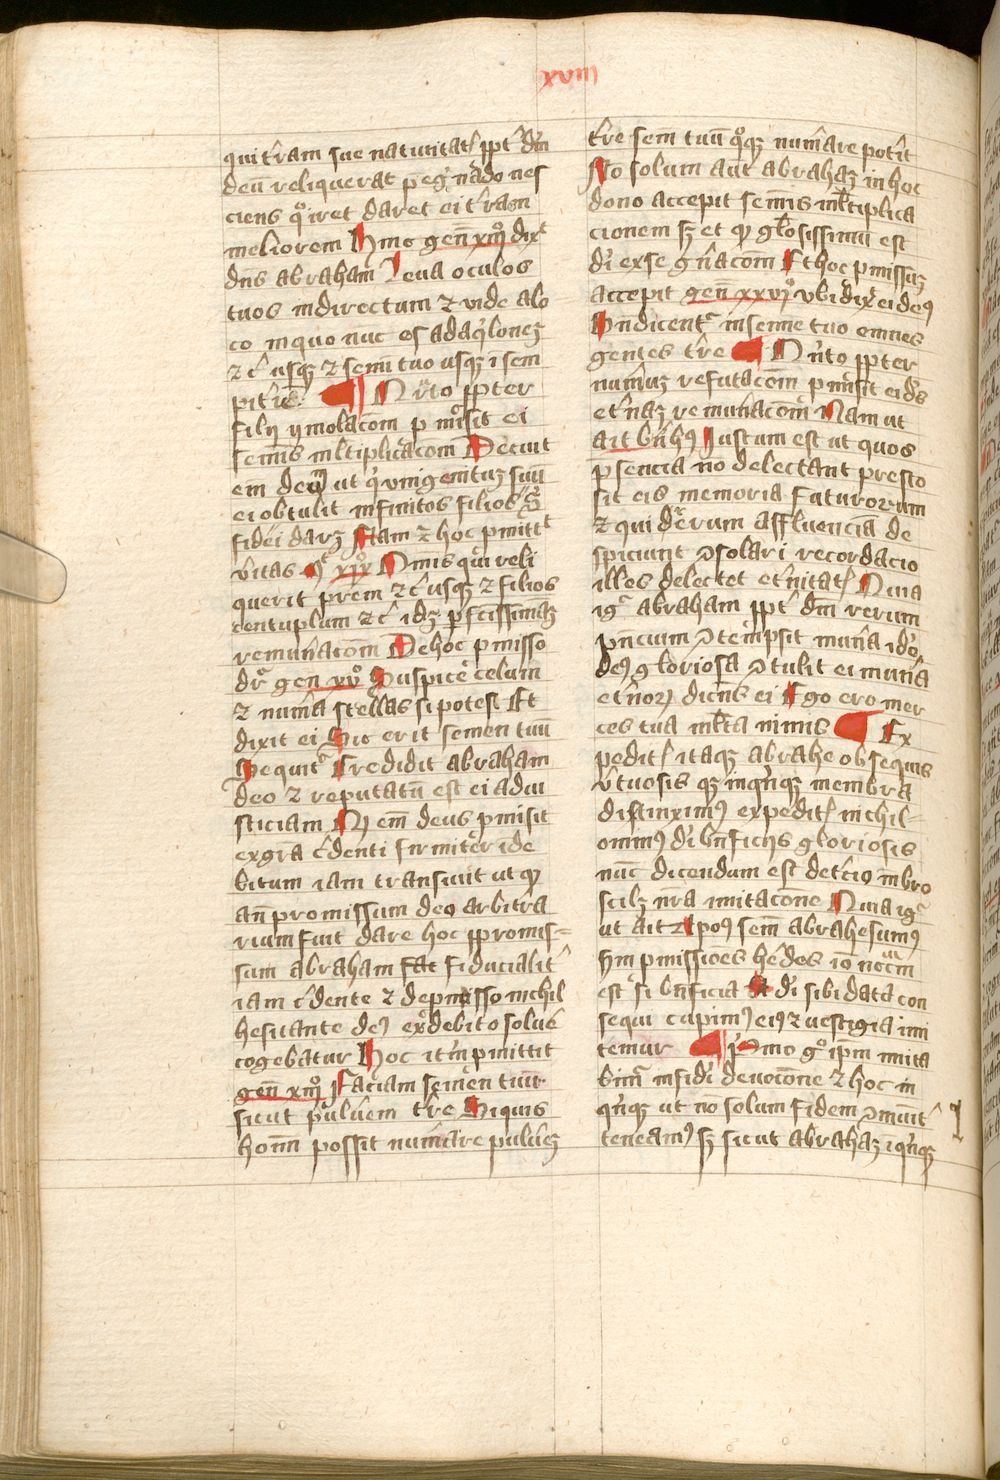 xviii
qui t̄ram sue natiuitatꝭ ꝓpt̄ dīn
deū reliquerat pegͥnādo nes
ciens qͦ iret daret ei t̄ram
meliorem Hinc gen̄ xiijͦ dixͭ
dn̄s abraham Leua oculos
tuos in directum ⁊ vide a lo
co in quo nūc es ad aqͥlonēꝫ
⁊ c̄ usqꝫ ⁊ semī tuo usqꝫ ī sem
pit̄nū ¶ ꝓpter
filij ymolac̄om ꝓmisit ei
semīs ml̄tiplicac̄om Decuit
em̄ deū ut qͥ vnigenituꝫ suū
ei obtulit infinitos filios
fidei darꝫ Nam ⁊ hoc ꝓmittͭ
v̄itas xixͦ Omīs qui reli
querit prēm ⁊ c̄ usqꝫ ⁊ filios
centuplum ⁊ c̄ id ꝑfc̄issimaꝫ
remūnac̄om De hoc ꝓmisso
dr̄ gen̄ xvͦ Suspice celum
⁊ num̄a stellas si potest Et
dixit ei Sic erit semen tuū
Sequit᷑ Credidit abraham
deo ⁊ reputatū est ei ad iu
sticiam em̄ deus ꝓmisit
ex gr̄a c̄denti firmiter i de
bitum iam transiuit ut qꝫ
an̄ promissum deo arbitra
rium fuit dare hoc ꝓpromis-
sum abraham fac fiducialit̄
iam c̄dente ⁊ de ꝓmisso nichil
hesitante deꝰ ex debito solūe
cogebatur Hoc it̄m ꝓmittit
gen̄ xiijͦ Faciam semen tuū
sicut pulūem t̄re Si quis
hoīm possit num̄are puluēꝫ
t̄re semͥ tuū qͦqꝫ num̄are pot̄it
No solum aūt abrahaꝫ in hoc
dono accepit semīs ml̄tiplica
cionem sꝫ et ꝙ gl̄osissimū est
dī ex se gn̄acom Et hoc ꝓmissuꝫ
accepit gen̄ xxvjͦ vbi dix̄ ei deꝰ
Bn̄dicent᷑ in semīe tuo omnes
gentes t̄re ¶ ꝓpter
num̄uꝫ refutac̄om ꝓmisit ei dꝰ
et̄naꝫ remūnac̄om Nam ut
ait bn̄hꝰ Iustum est ut quos
p̄sencia nō delectant presto
sit eis memoria futurorum
⁊ qui rerum affluenciā de
spiciunt ꝯsolari recordacio
illos delectet et̄nitatꝭ Quia
igͬ abraham ꝓpt̄ dm̄ rerum
ꝯtempsit mun̄a idͦ
deꝰ gloriosa ꝯtulit ei mun̄a
et̄noꝝ dicens ei Ego ero mer
ces tua ml̄ta nimis ¶ Ex
peditꝭ itaqꝫ abrahe obsequijs
v̄tuosis qꝫ in qͥnqꝫ membra
distinximꝰ expeditꝭ nichil-
ominꝰ dī bn̄ficijs gloriosis
nūc dicendum est de t̄cio mbro
scilꝫ nr̄a imitac̄one Quia igͬ
ut ait apꝰ semē abrahe sumꝰ
scdm ꝓmissiōes hēdes iō
est si bn̄ficia dī sibi data con
sequi cupimꝰ eiꝰ ⁊ uestigia imi
temur ¶ Pͥmo gͦ ip̄m imita
bim᷑ in fidī deuoc̄one ⁊ hoc in
qͥnqꝫ ut nō solum fidem ꝯmūit̄
teneamꝰ sꝫ sicut abrahaꝫ i qͥnqꝫ